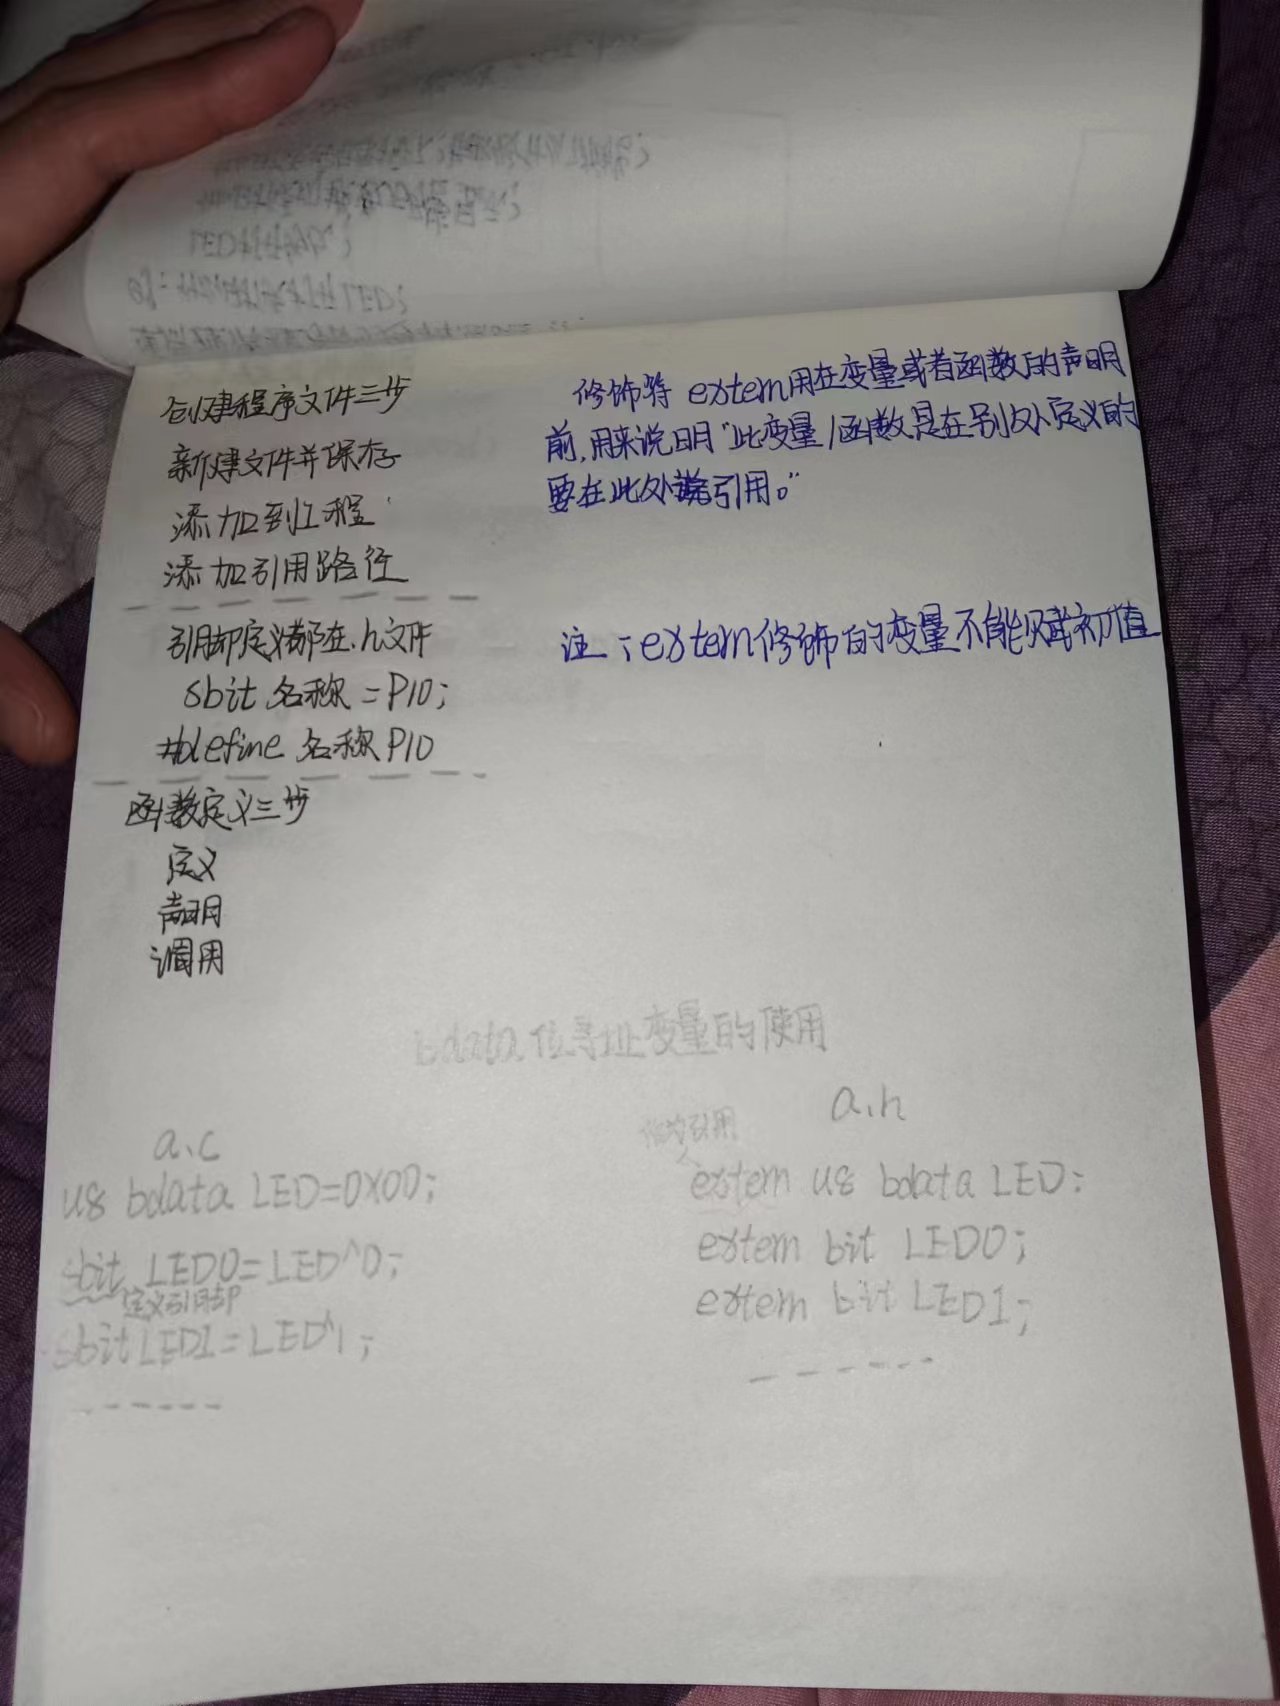 LED
创建程序文件三步
新建文件并保存
添加到工程
添加引用路径
引脚定义都在.h文件
sbit 名称=P10;
#define 名称 P10
函数定义三步
定义
声明
调用
修饰符 extern用在变量或者函数的声明
前,用来说明"此变量/函数是在别处定义的
要在此处引用。"
注:extern修饰的变量不能赋初值
bdata位寻址变量的使用
a.c
u8 bdata LED=0X00;
sbit LED0=LED^0;
定义引用脚
sbit LED1=LED^1;
a.h
引用
extern u8 bdata LED:
extern bit LED0;
extern bit LED1;